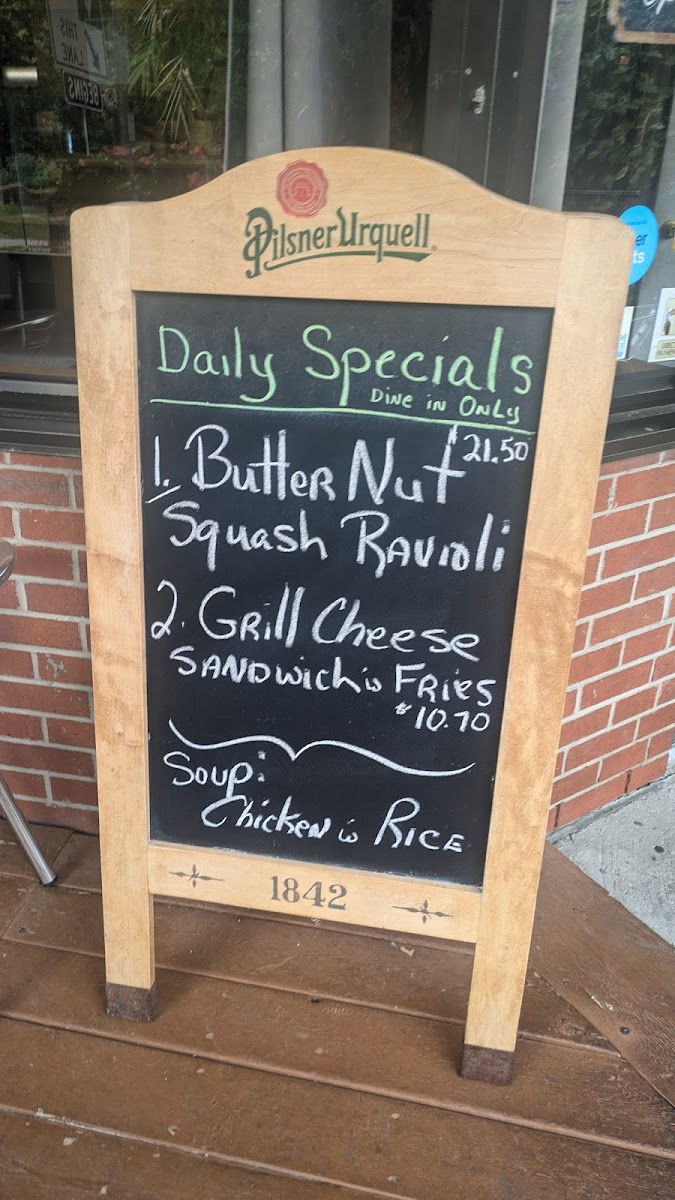 THIS
LANE
BEGINS
Pilsner Urquell
Daily Specials
Dine in Only
$21.50
1. Butter Nut
Squash Ravioli
2. Grill Cheese
Sandwich w Fries
$10.70
Soup:
Chicken w Rice
1842